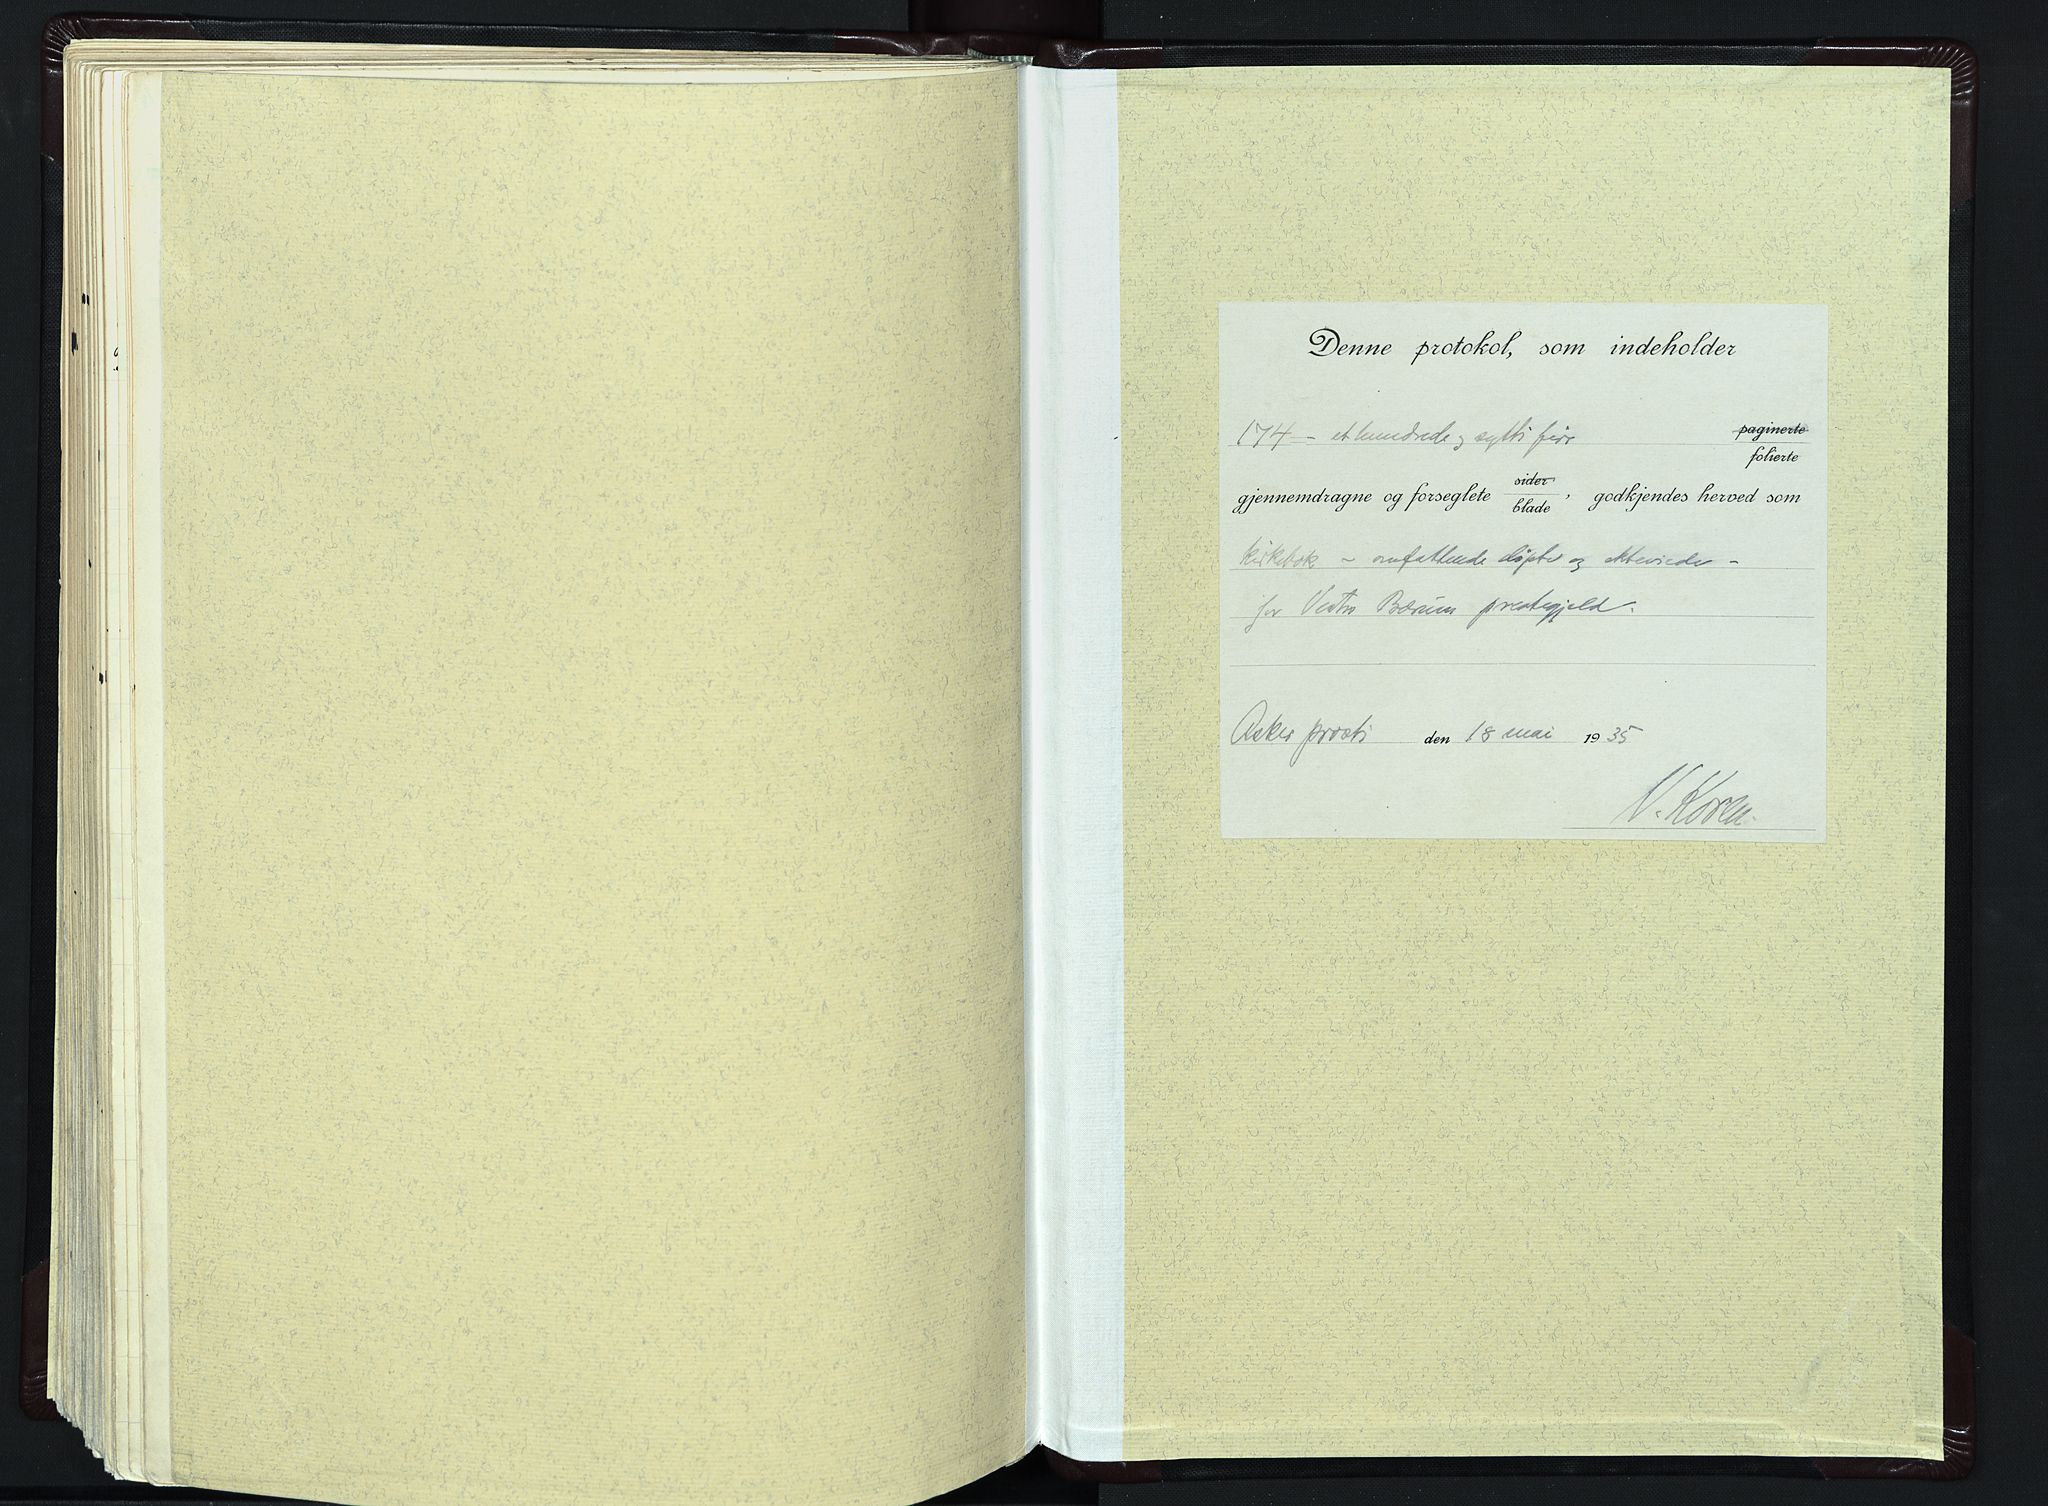 Denne protokol, som indeholder
174 – et hundrede og sytti fire paginerte
folierte
gjennemdragne og forseglete sider / blade, godkjendes herved som
kirkebok – omfattende døpte og ekteviede –
for Vestre Bærum prestegjeld.
Asker prosti den 18 mai 1935
V. Koren.